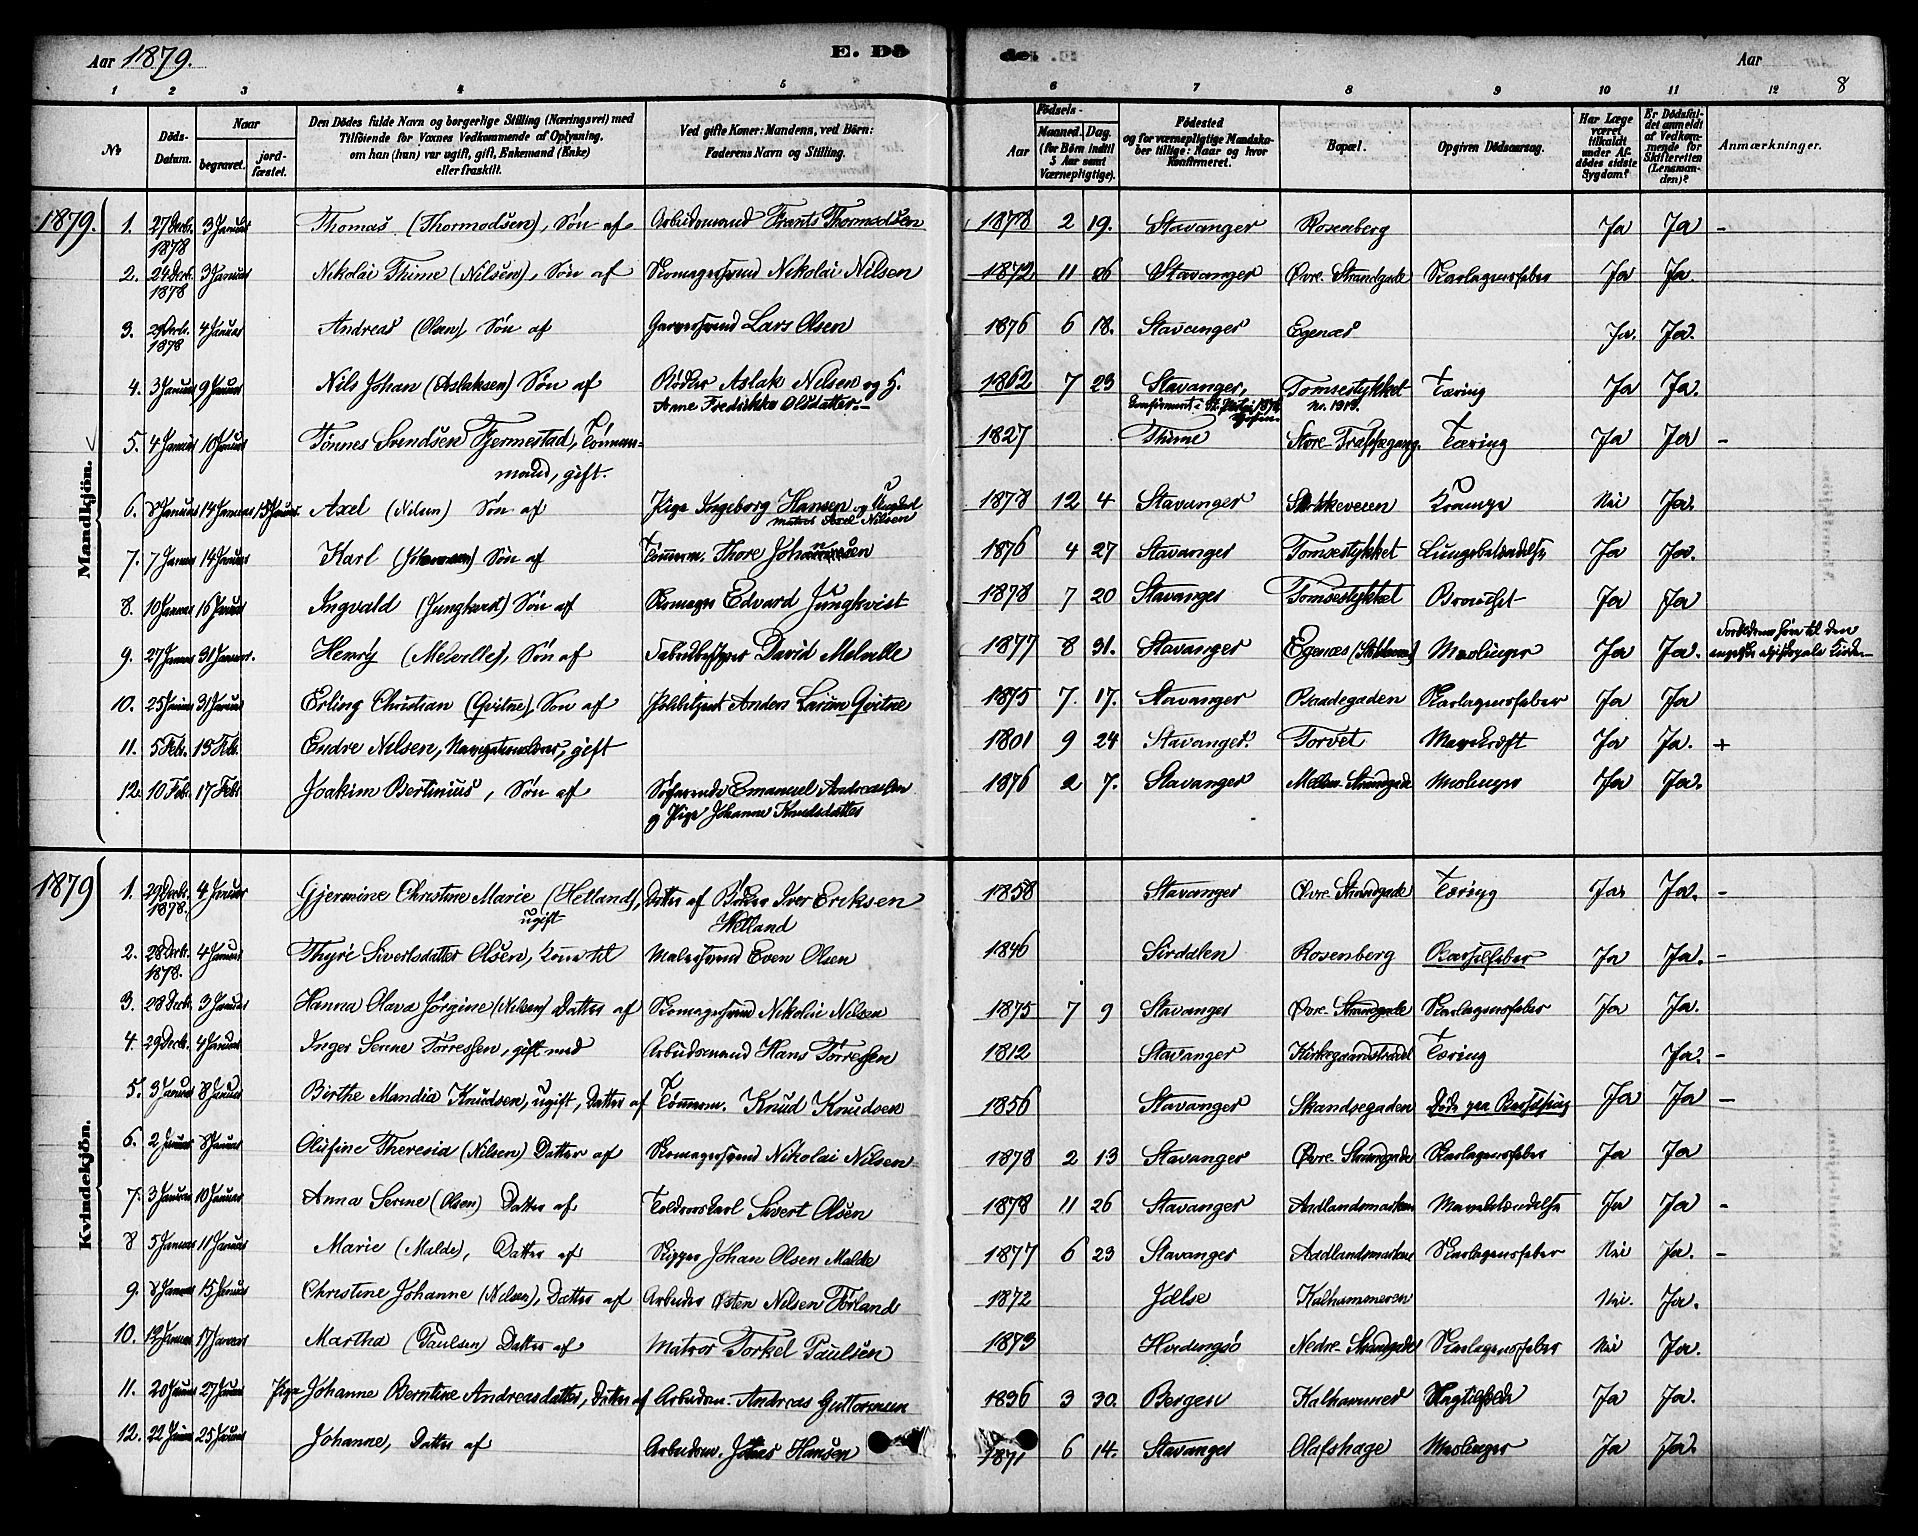 Aar 1879. E. Dö
de. Aar 8
1 2 3 4 5 6 7 8 9 10 11 12
№ Döds-Datum. Naar begravet. jordfæstet. Den Dödes fulde Navn og borgerlige Stilling (Næringsvei) med Tilföiende for Voxnes Vedkommende af Oplysning, om han (hun) var ugift, gift, Enkemand (Enke) eller fraskilt. Ved gifte Koner: Mandens, ved Börn: Faderens Navn og Stilling. Aar Födsels- Maaned. Dag. (for Börn indtil 5 Aar samt Værnepligtige). Födested og for værnepligtige Mandskaber tillige: Naar og hvor Konfirmeret. Bopæl. Opgiven Dödsaarsag. Har Læge været tilkaldt under Afdödes sidste Sygdom? Er Dödsfaldet anmeldt af Vedkommende for Skifteretten (Lensmanden)? Anmærkninger.
Mandkjön.
1879. 1. 27 Decb. 1878 3 Januar Thomas (Thormodsen), Søn af Arbeidsmand Frants Thormodsen 1878 2 19. Stavanger Rosenberg Ja Ja -
2. 24 Decb. 1878 3 Januar Nikolai Thime (Nilsen), Søn af Skomagersvend Nikolai Nilsen 1872 11 26 Stavanger Øvre Strandgade Skarlagensfeber Ja Ja.
3. 29 Decb. 1878 4 Januar Andreas (Olsen) Søn af Garversvend Lars Olsen 1876 6 18. Stavanger Egenæs Ja. Ja.
4. 3 Januar 9 Januar Nils Johan (Aslaksen) Søn af Bødker Aslak Nilsen og H. Anne Fredrikke Olsdatter.- 1862 7 23 Stavanger, Tomsestykket No. 1919. Tæring Ja Ja.
5. 4 Januar 10 Januar Tønnes Svendsen Fjermestad, Tømmermand, gift. 1827 Thime Store Trappegang. Tæring Ja Ja -
6. 8 Januar 14 Januar Axel (Nilsen) Søn af Pige Ingeborg Hansen og Ungkarl Axel Nilsen 1878 12 4 Stavanger Krampe Nei Ja.
7. 7 Januar 14 Januar Karl (Johannesen) Søn af Tømmerm. Thore Johannesen 1876 4 27 Stavanger Tomsestykket Lungebetændelse Ja Ja.
8. 10 Januar 16 Januar Ingvald (Jungkvist) Søn af Skomager Edvard Jungkvist 1878 7 20 Stavanger Tomsestykket Bronchit Ja Ja
9. 27 Januar 31 Januar. Henry (Melville), Søn af David Melville 1877 8 31. Stavanger Egenæs Meslinger Ja Ja. Forældrene høre til den engelske episkopale Kirke
10. 25 Januar 31 Januar Erling Christian (Qvitne), Søn af Politibetjent Anders Larsen Qvitne 1875 7. 17. Stavanger Baadegaden Skarlagensfeber Ja Ja
11. 5 Feb. 15 Feb. Endre Nilsen, Navigationslærer, gift 1801 9 24 Stavanger. Torvet Mavekræft Ja Ja. +
12. 10 Feb. 17 Feb. Joakim Bertinius, Søn af Søfarende Emanuel Andreassen og Pige Johanne Knudsdatter 1876 2 7. Stavanger Mellem Strandgade Meslinger Ja Ja.
Kvindekjön.
1879 1. 29 Decb. 1878. 4 Januar Gjermine Christine Marie (Helland), ugift Datter af Bødker Iver Eriksen Helland 1858 Stavanger Øvre Strandgade Tæring Ja. Ja. -
2. 28 Decb. 1878. 4 Januar Thyri Sivertsdatter Olsen, Kone til Malersvend Even Olsen 1846 Sirdalen Rosenberg Barselfeber Ja Ja. -
3. 28 Decb. 3 Januar Hanna Olava Jørgine (Nilsen) Datter af Skomagersvend Nikolai Nilsen 1875 7 9 Stavanger Øvre Strandgade Skarlagensfeber Ja Ja.
4. 29 Decb. 4 Januar Inger Serine Torressen, gift med Arbeidsmand Hans Torressen 1812 Stavanger Kirkegaardsstrædet Tæring Ja. -
5. 3 Januar 8 Januar Birthe Mandia Knudsen, ugift, Datter af Tømmerm. Knud Knudsen 1856 Stavanger Skandsegaden Døde paa Barselseng Ja Ja -
6. 2 Januar 8 Januar Olufine Theresia (Nilsen) Datter af Skomagersvend Nikolai Nilsen 1878 2 13 Stavanger Øvre Strandgade Skarlagensfeber Ja Ja
7. 3 Januar 10 Januar Anna Serine (Olsen) Datter af Toldroerskarl Sivert Olsen 1878 11 26 Stavanger Aadlandsmarken Mavebetændelse Ja Ja -
8 5 Januar 11 Januar Marie (Malde), Datter af Skipper Johan Olsen Malde 1877 6 23 Stavanger Aadlandsmarken Skarlagensfeber Nei Ja. -
9. 8 Januar 15 Januar Christine Johanne (Nilsen), Datter af Arbeider Østen Nilsen 1872 Jelse Kalhammeren Nei. Ja.
10. 12 Januar 17 Januar Martha (Paulsen) Datter af Matros Torkel Paulsen 1873 Hvidingsö Nedre Strandgade Skarlagensfeber Nei Ja.
11. 20 Januar 27 Januar Pige Johanne Berntine Andreasdatter, Datter af Arbeidsm. Andreas Guttormsen 1836 3 30. Bergen Kalhammer Ja Ja.
12. 22 Januar 25 Januar Johanne, Datter af Arbeidsm. Jonas Hansen 1871 6 14. Stavanger Olafshage Meslinger Ja Ja.